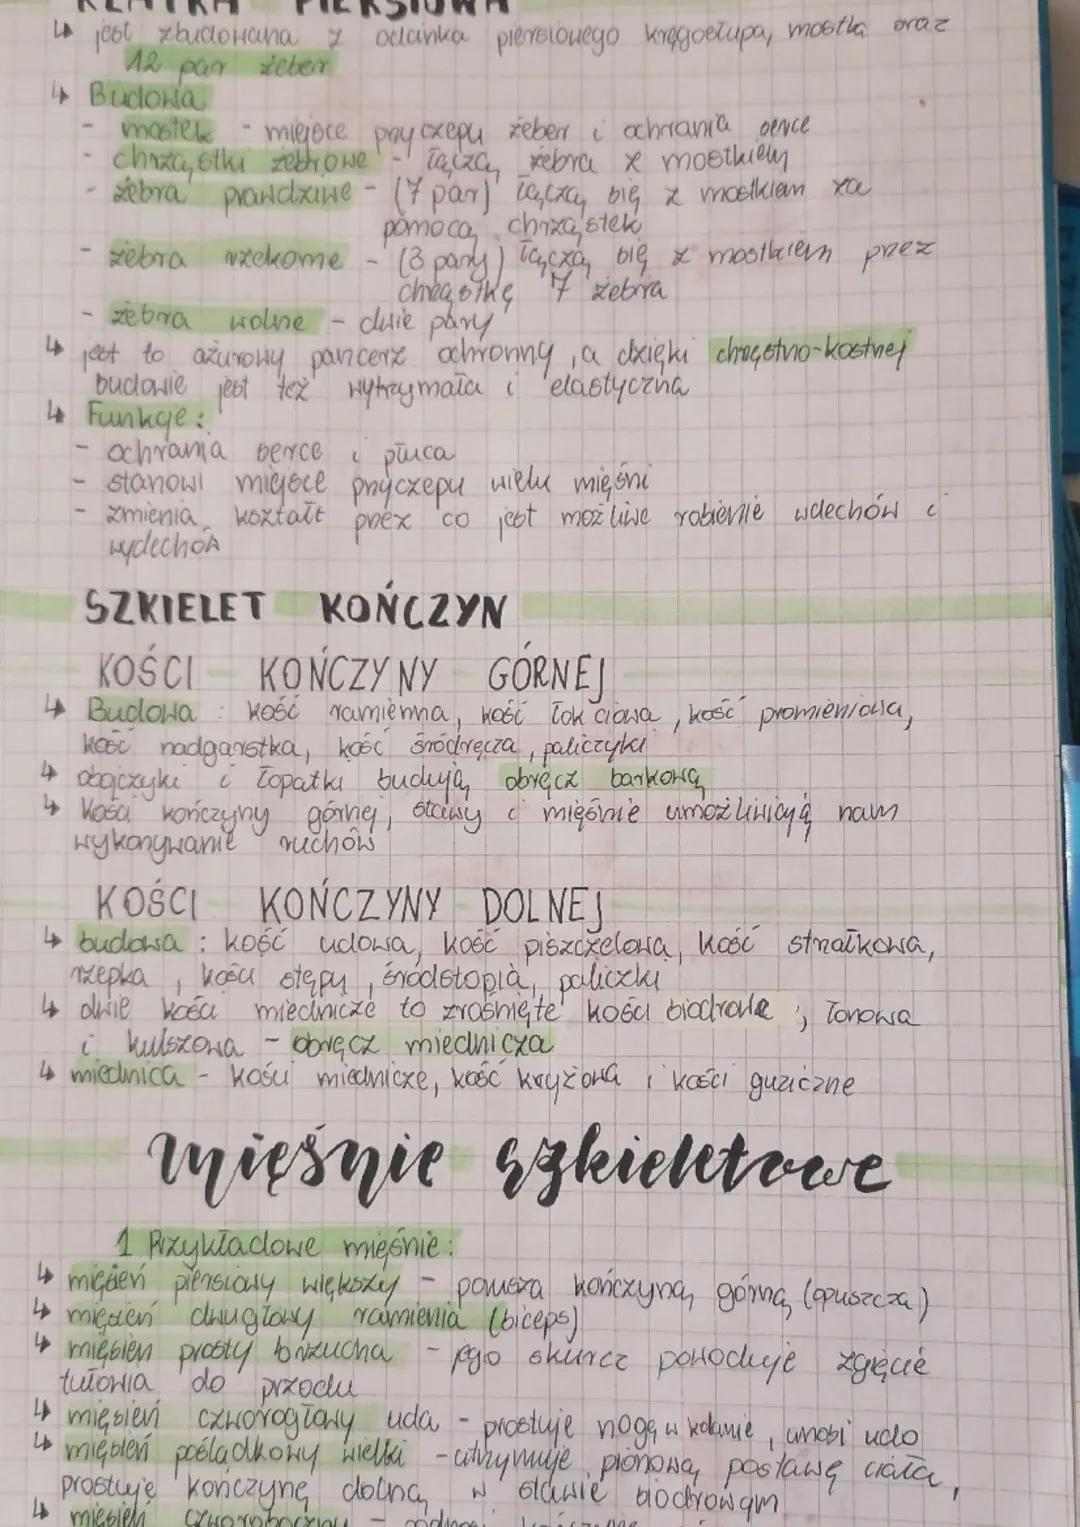 KLATKA PIERSIOWA
↳ jest zbudowana z odcinka piersiowego kręgosłupa, mostka oraz
12 par żeber
↳ Budowa
- mostek - miejsce przyczepu żeber i ochrania serce
- chrząstki żebrowe - łączą żebra z mostkiem
- żebra prawdziwe - (7 par) łączą się z mostkiem za
pomocą chrząstek
- żebra rzekome - (3 pary) łączą się z mostkiem przez
chrząstkę 7 żebra
- żebra wolne - dwie pary
↳ jest to ażurowy pancerz ochronny, a dzięki chrzęstno-kostnej
budowie jest też wytrzymała i elastyczna
↳ Funkcje:
- ochrania serce i płuca
- stanowi miejsce przyczepu wielu mięśni
- zmienia kształt przez co jest możliwe robienie wdechów i
wydechów
SZKIELET KOŃCZYN
KOŚCI KOŃCZYNY GÓRNEJ
↳ Budowa: kość ramienna, kość łokciowa, kość promieniowa,
kość nadgarstka, kość śródręcza, paliczyki
↳ obojczyki i łopatki budują obręcz barkową
↳ Kości kończyny górnej, stawy i mięśnie umożliwiają nam
wykonywanie ruchów
KOŚCI KOŃCZYNY DOLNEJ
↳ budowa: kość udowa, kość piszczelowa, kość strzałkowa,
rzepka, kości stępu, śródstopia, paliczki
↳ dwie kości miednicze to zrośnięte kości biodrowa, łonowa
i kulszowa - obręcz miednicza
↳ miednica - kości miednicze, kość krzyżowa i kości guziczne
mięśnie szkieletowe
1 Przykładowe mięśnie:
↳ mięsień piersiowy większy - porusza kończyną górną (opuszcza)
↳ mięsień dwugłowy ramienia (biceps)
↳ mięsień prosty brzucha - jego skurcz powoduje zgięcie
tułowia do przodu
↳ mięsień czworogłowy uda - prostuje nogę w kolanie, unosi udo
↳ mięsień pośladkowy wielki - utrzymuje pionową postawę ciała,
prostuje kończynę dolną w stawie biodrowym
↳ mięsień czworoboczny -